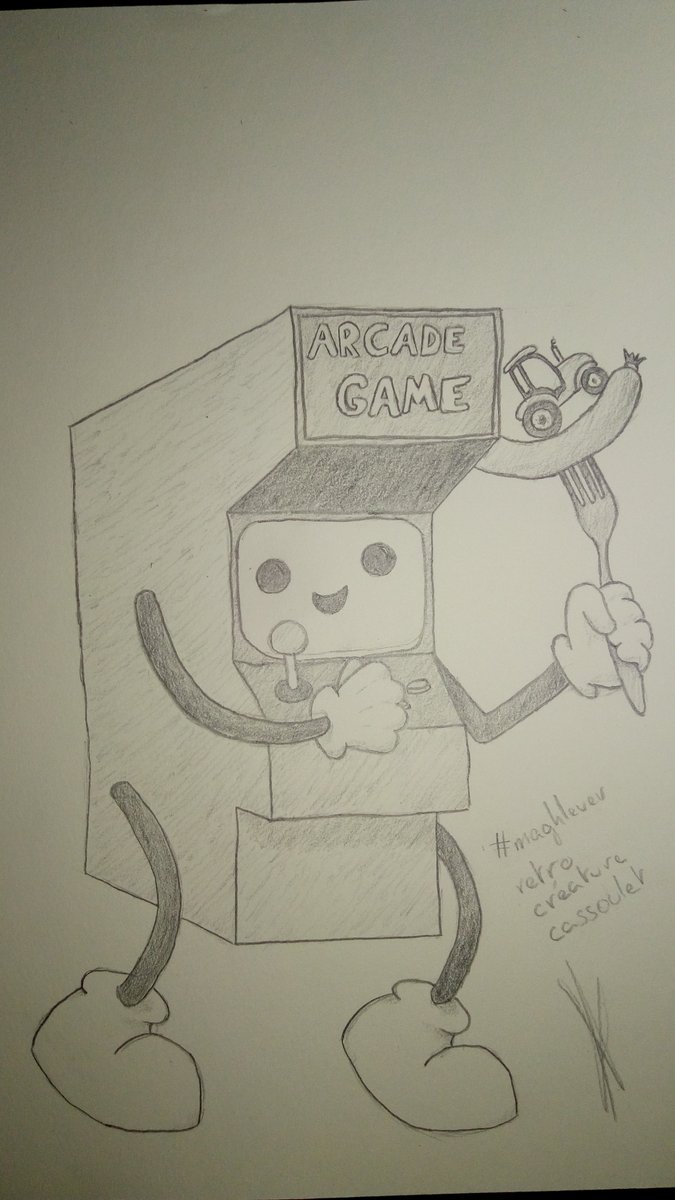 ARCADE
GAME
#maghlever
retro
créature
cassoulet